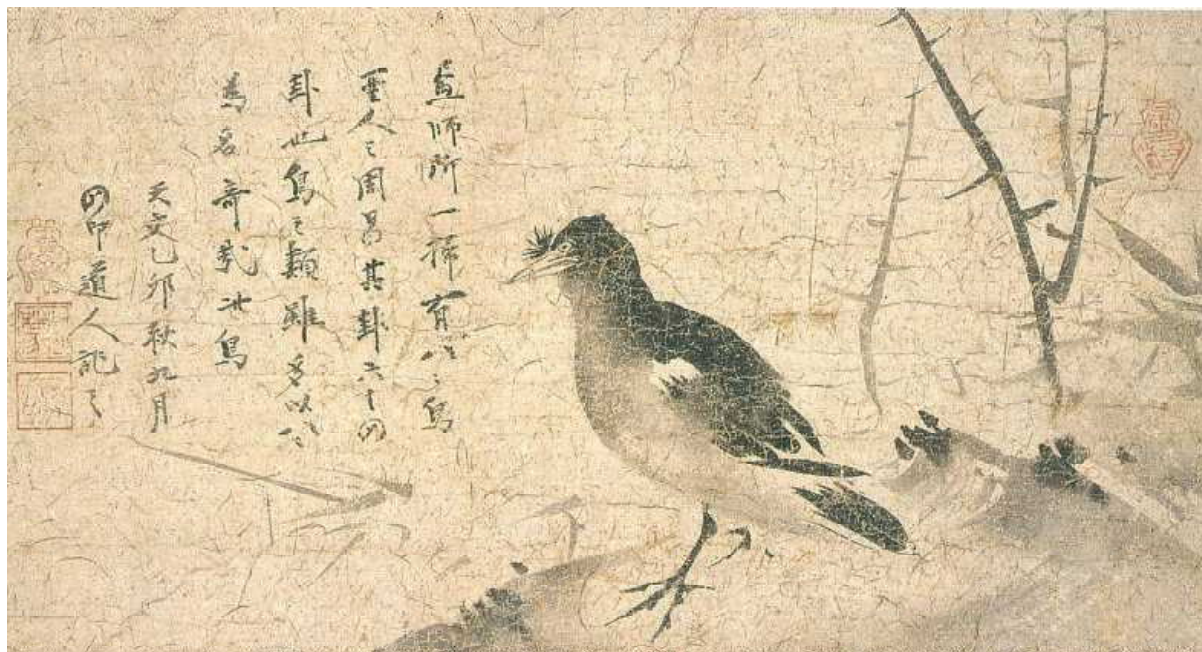 画師所一揮有八〻鳥
聖人之周易其卦六十四
卦也鳥之類雖多以八〻
為名奇哉此鳥
天文乙卯秋九月
四印道人記之